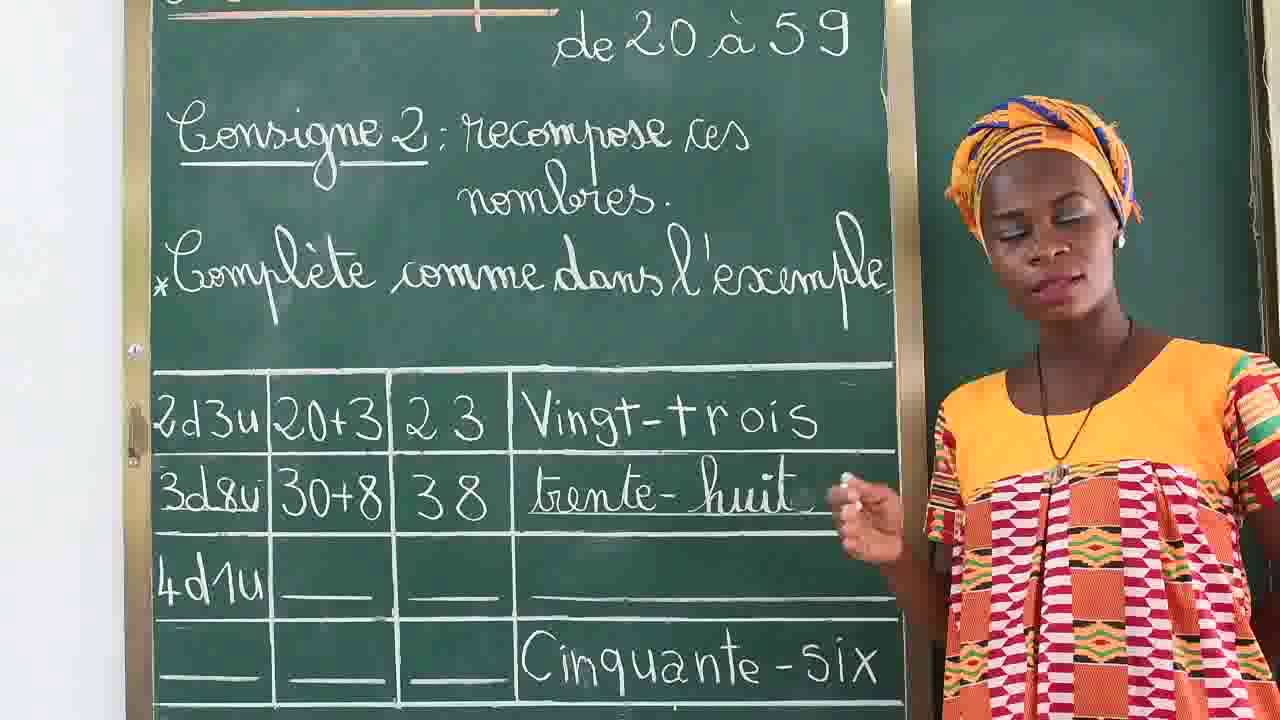 de 20 à 59
Consigne 2 : recompose ces
nombres.
* Complète comme dans l'exemple.
2d3u 20+3 23 Vingt-trois
3d8u 30+8 38 trente-huit
4d1u ___ ___ ___
___ ___ ___ Cinquante-six